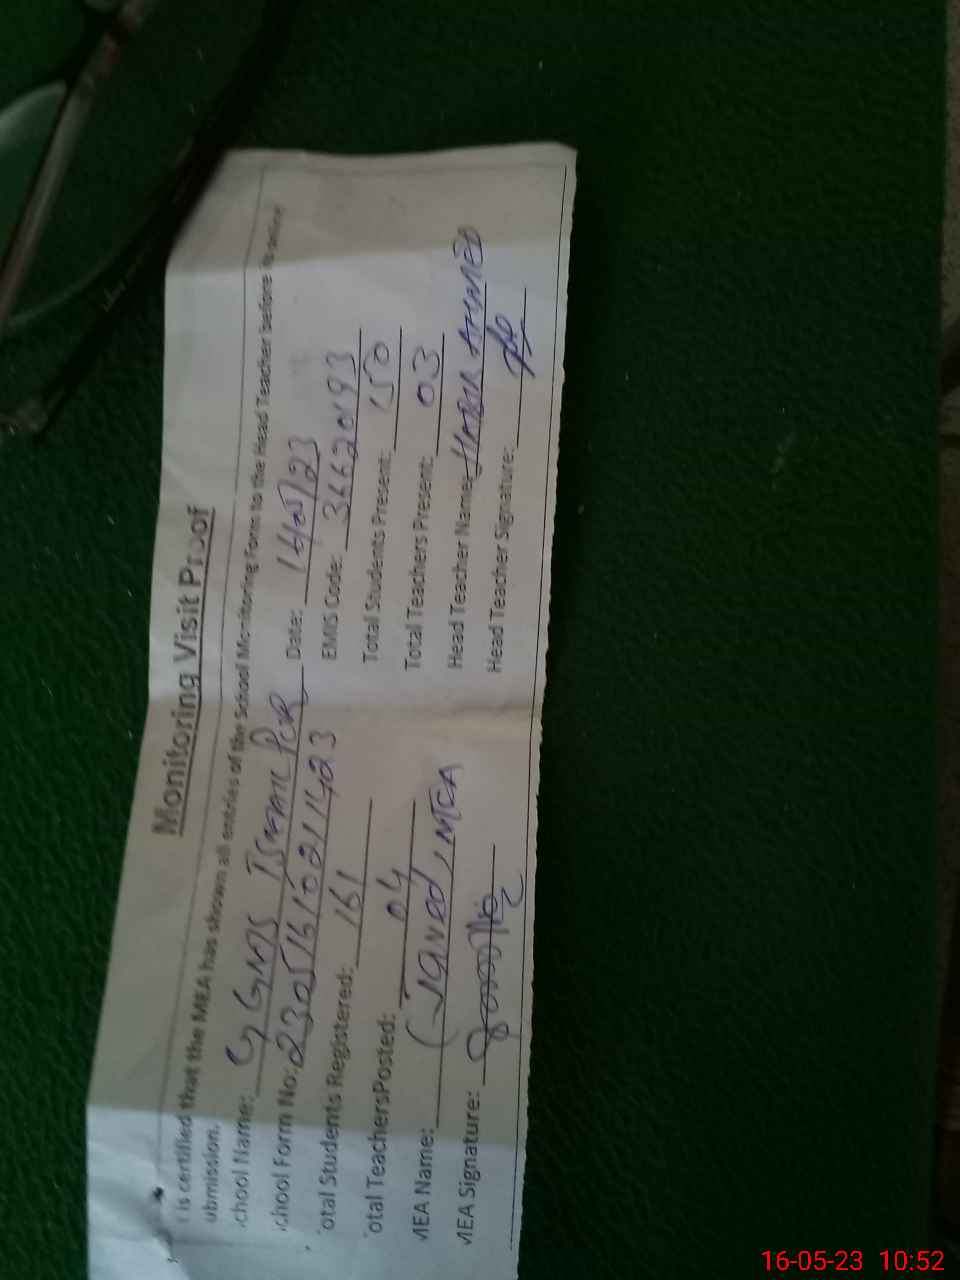 Monitoring Visit Proof
is certified that the MEA has shown all entries of the School Monitoring Form to the Head Teacher before its online
ubmission.
chool Name: GGMS ISMAIL PUR Date: 16/05/23
chool Form No: 230516102111423 EMIS Code: 36620193
otal Students Registered: 161 Total Students Present: 150
otal TeachersPosted: 04 Total Teachers Present: 03
MEA Name: (Javed) MEA Head Teacher Name: AHMED
MEA Signature: Head Teacher Signature:
16-05-23 10:52